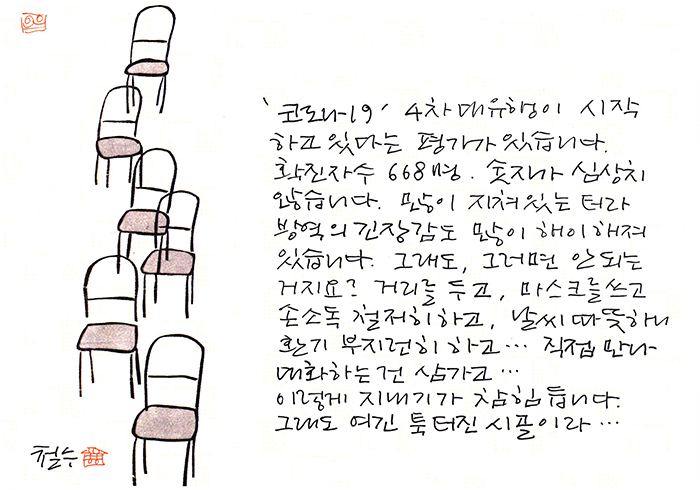 '코로나-19' 4차 대유행이 시작
하고 있다는 평가가 있습니다.
확진자수 668명. 숫자가 심상치
않습니다. 많이 지쳐있는 터라
방역의 긴장감도 많이 해이해져
있습니다. 그래도, 그러면 안 되는
거지요? 거리를 두고, 마스크를 쓰고
손소독 철저히 하고, 날씨 따뜻하니
환기 부지런히 하고… 직접 만나
대화하는 건 삼가고…
이렇게 지내기가 참 힘듭니다.
그래도 여긴 툭 터진 시골이라…
철수